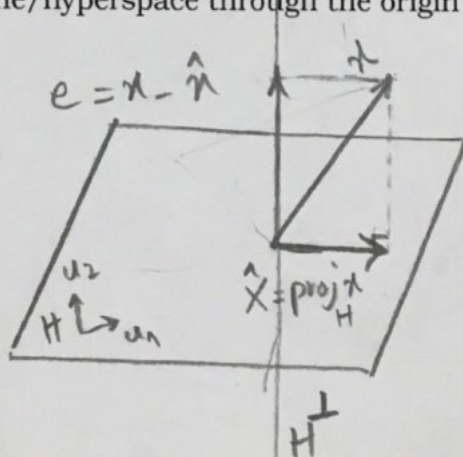 ne/hyperspace through the origin
x
e = x - x̂
u2
H
u1
x̂ = proj_H x
H⊥